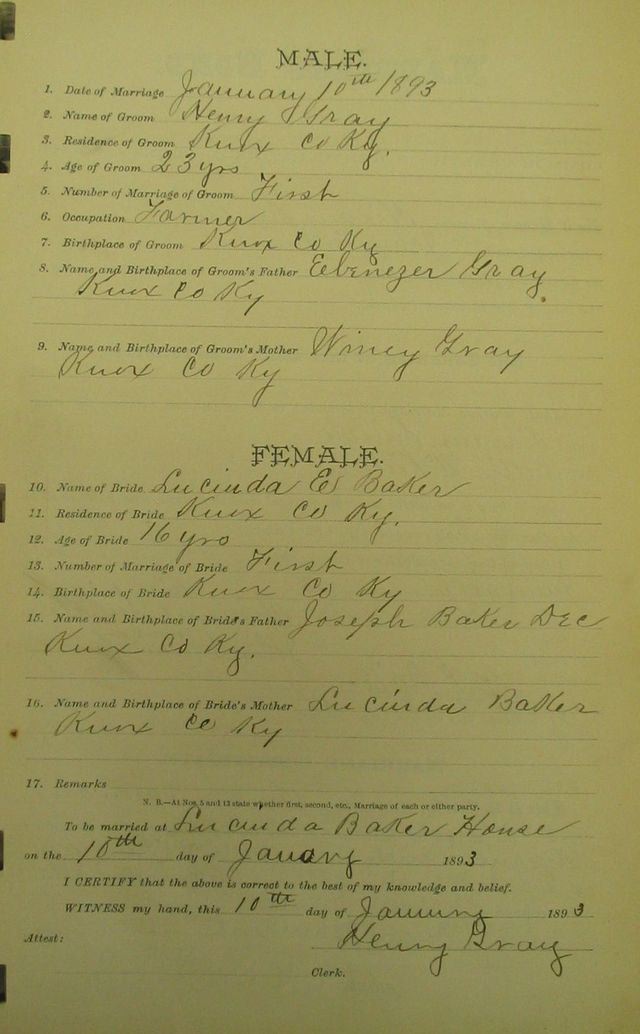 MALE.
1. Date of Marriage January 10th 1893
2. Name of Groom Henry Gray
3. Residence of Groom Knox Co Ky.
4. Age of Groom 23 yrs
5. Number of Marriage of Groom First
6. Occupation Farmer
7. Birthplace of Groom Knox Co Ky
8. Name and Birthplace of Groom's Father Ebenezer Gray
Knox Co Ky
9. Name and Birthplace of Groom's Mother Winey Gray
Knox Co Ky
FEMALE.
10. Name of Bride Lucinda E Baker
11. Residence of Bride Knox Co Ky.
12. Age of Bride 16 yrs
13. Number of Marriage of Bride First
14. Birthplace of Bride Knox Co Ky
15. Name and Birthplace of Bride's Father Joseph Baker Dec
Knox Co Ky.
16. Name and Birthplace of Bride's Mother Lucinda Baker
Knox Co Ky
17. Remarks
N. B.—At Nos. 5 and 13 state whether first, second, etc., Marriage of each or either party.
To be married at Lucinda Baker House
on the 10th day of January 1893
I CERTIFY that the above is correct to the best of my knowledge and belief.
WITNESS my hand, this 10th day of January 1893
Attest: Henry Gray
Clerk.